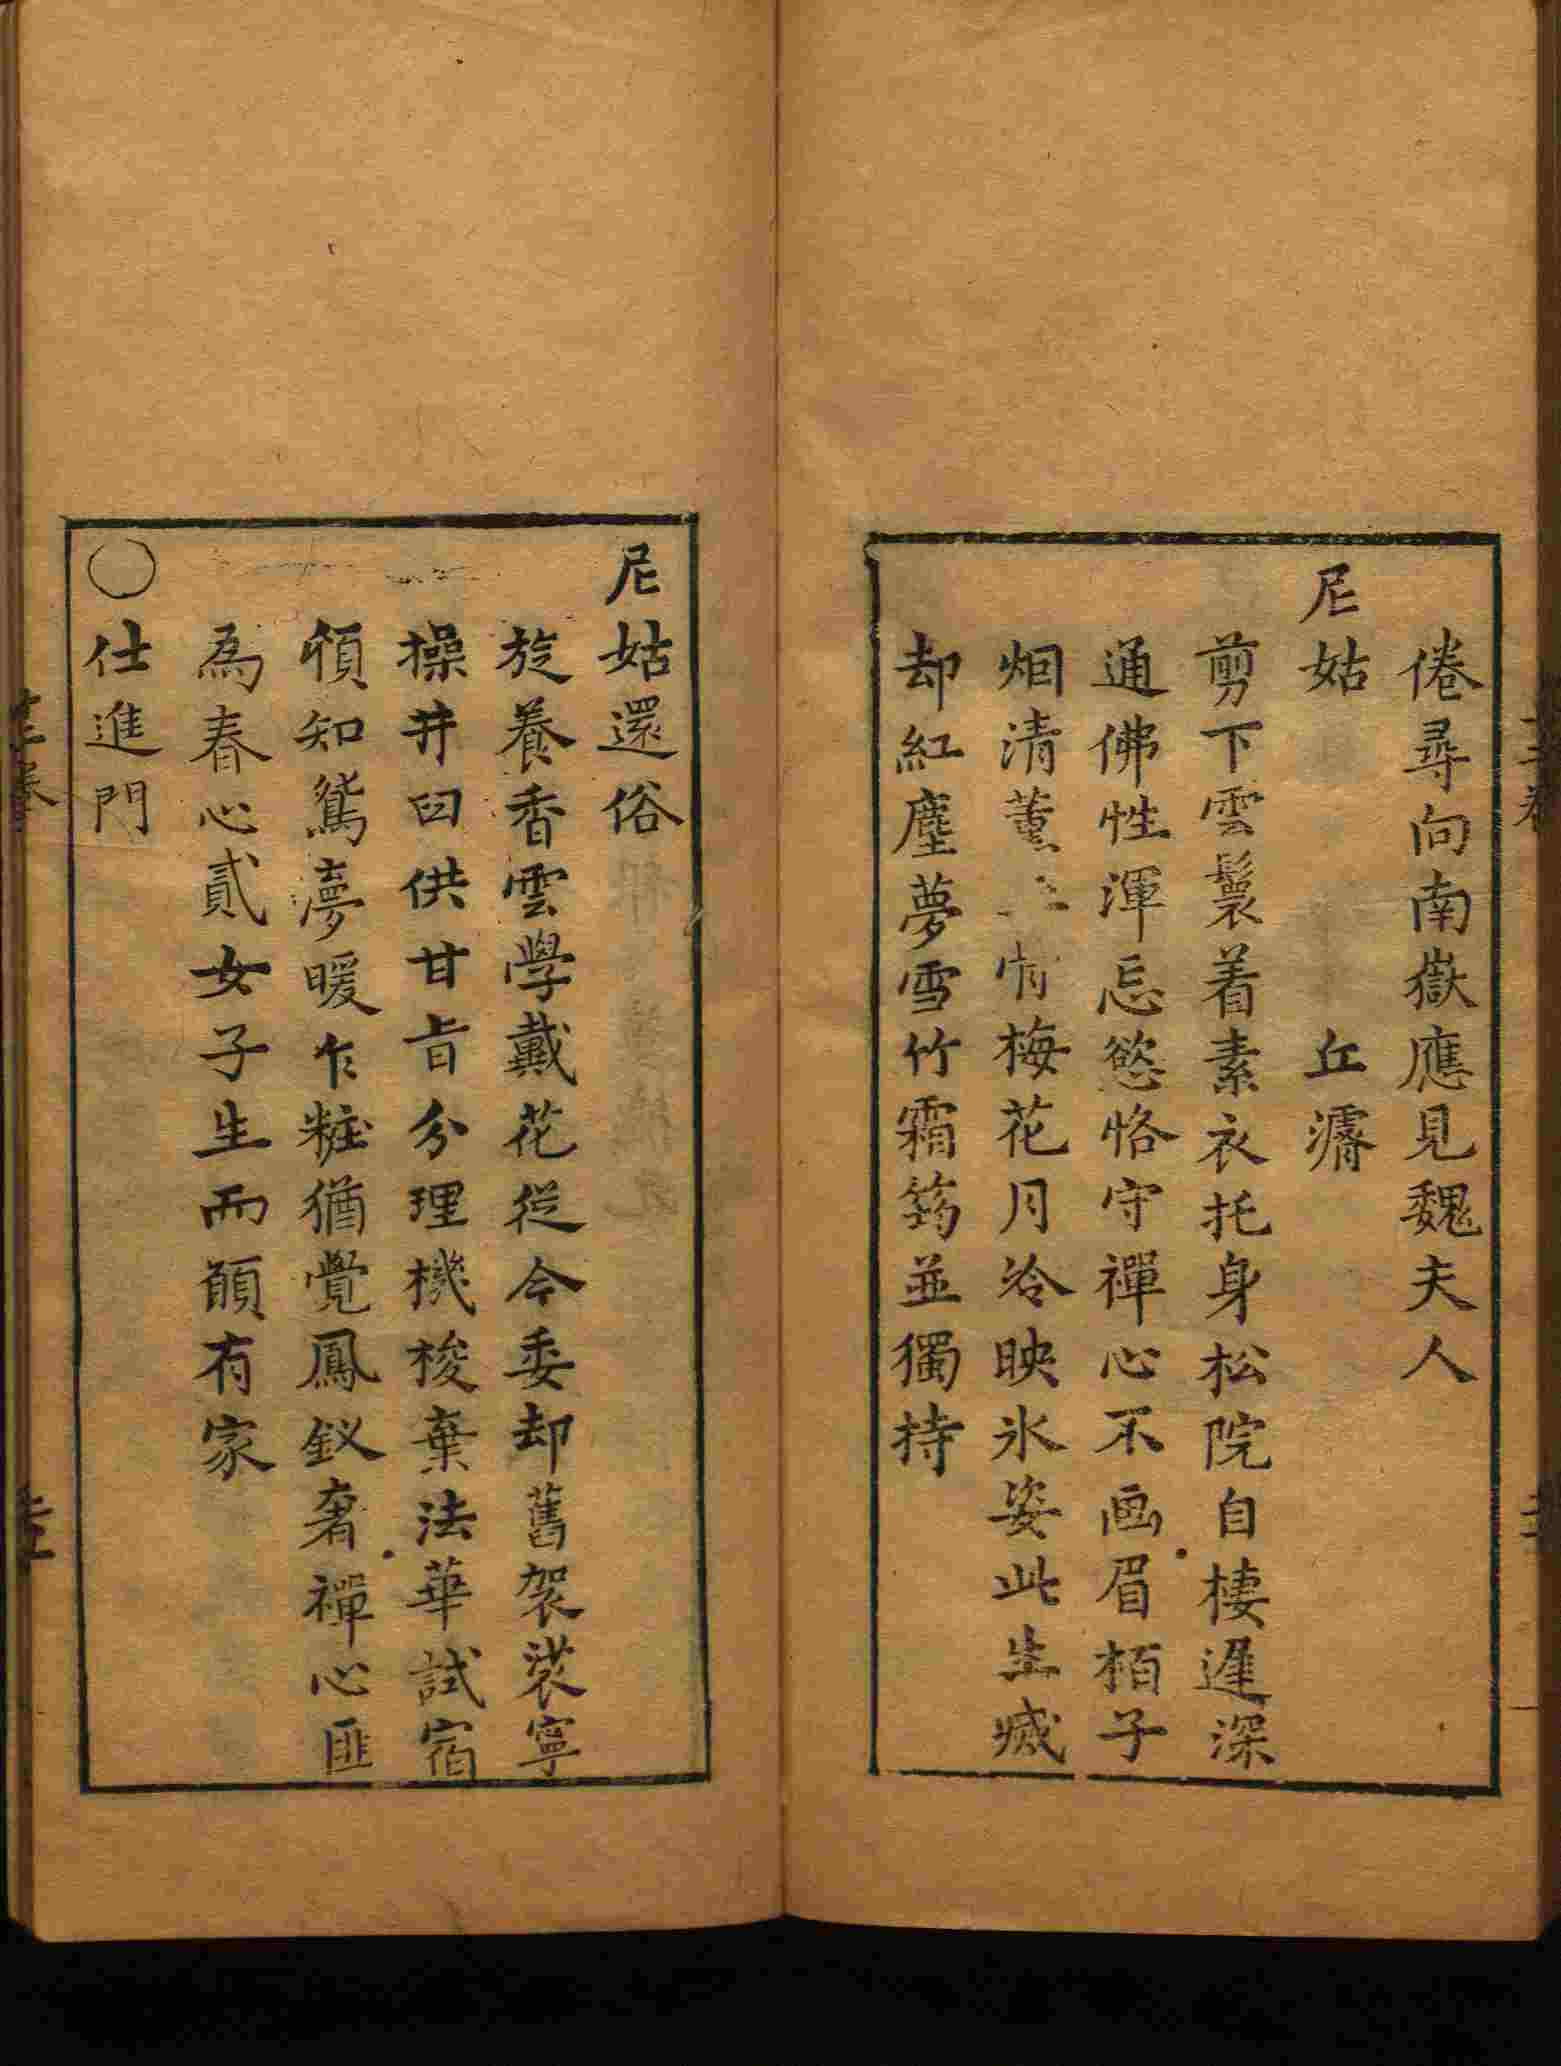 倦尋向南嶽應見魏夫人
尼姑 丘濬
剪下雲鬟着素衣托身松院自棲遲深
通佛性渾忘慾恪守禪心不画眉栢子
烟清薰 梅花月冷映氷姿此生滅
却紅塵夢雪竹霜筠並獨持
尼姑還俗
旋養香雲學戴花從今委却舊袈裟寧
操井臼供甘旨分理機梭棄法華試宿
頓知鴛夢暖乍粧猶覺鳳釵奢禪心匪
為春心貳女子生而願有家
○仕進門